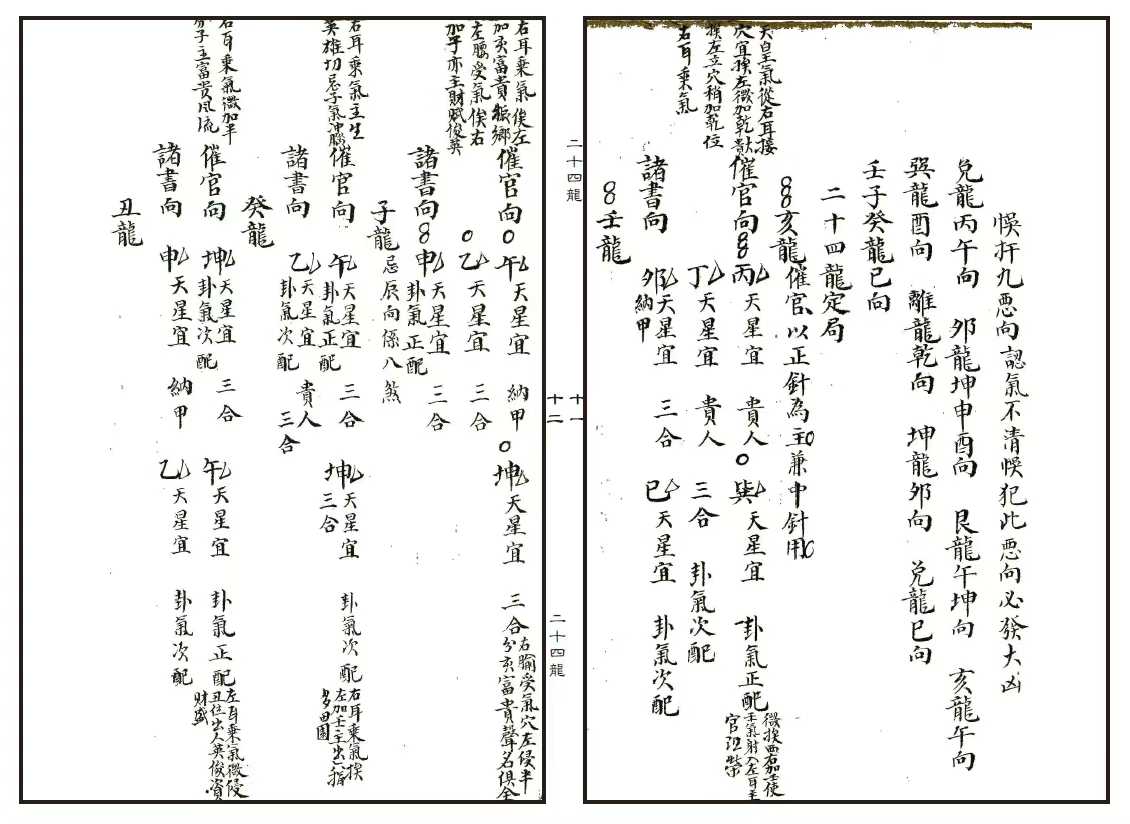 悞扞九惡向認氣不清悞犯此惡向必發大凶
兌龍丙午向 卯龍坤申酉向 艮龍午坤向 亥龍午向
巽龍酉向 離龍乾向 坤龍卯向 兌龍巳向
壬子癸龍巳向
二十四龍定局
亥龍催官以正針為主兼中針用
天皇氣從右耳接
穴宜挨左微加乾
挨左立穴稍加乾位
右耳乘氣
催官向 丙天星宜 貴人 巽天星宜 卦氣正配
丁天星宜 貴人 三合 卦氣次配
諸書向 卯天星宜納甲 三合 巳天星宜 卦氣次配
壬龍
十一
二十四龍
十二
二十四龍
右耳乘氣俟左
加亥富貴振鄉
左腰受氣俟右
加子亦主財賦俊英
催官向 午天星宜 納甲 坤天星宜 三合
右腧受氣穴左侵半
分亥富貴聲名俱全
乙天星宜 三合
諸書向 申天星宜卦氣正配 三合
子龍忌辰向係八煞
右耳乘氣主生
英雄切忌子氣沖腦
催官向 午天星宜卦氣正配 三合 坤天星宜三合 卦氣次配
右耳乘氣挨
左加壬主出指
多田園
諸書向 乙天星宜卦氣次配 貴人三合
癸龍
右耳乘氣微加半
分子主富貴風流
催官向 坤天星宜卦氣次配 三合 午天星宜 卦氣正配
左耳乘氣微侵
丑位出人英俊資
財盛
諸書向 申天星宜 納甲 乙天星宜 卦氣次配
丑龍